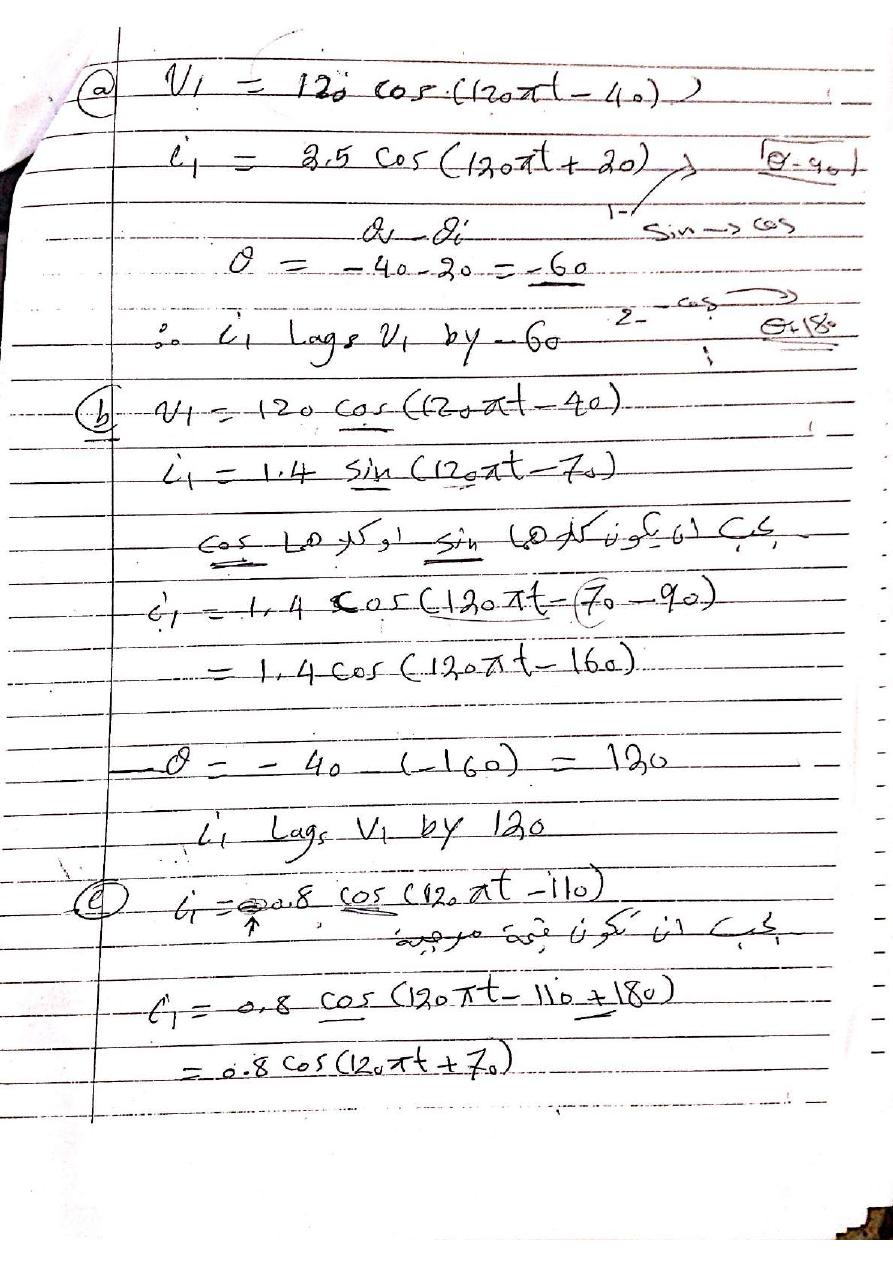 a V1 = 120 cos (120πt - 40)
i1 = 2.5 cos (120πt + 20) θ-90
1- sin → cos
θv - θi
θ = -40-20 = -60
2- -cos → θ+180
∴ i1 Lags V1 by -60
b V1 = 120 cos (120πt-40)
i1 = 1.4 sin (120πt-70)
يجب ان يكون كلاهما sin او كلاهما cos
i1 = 1.4 cos (120πt-70-90)
= 1.4 cos (120πt-160)
θ = -40 - (-160) = 120
i1 Lags V1 by 120
c i1 = -0.8 cos (120πt-110)
يجب ان تكون قيمة موجبة
i1 = 0.8 cos (120πt-110+180)
= 0.8 cos (120πt+70)